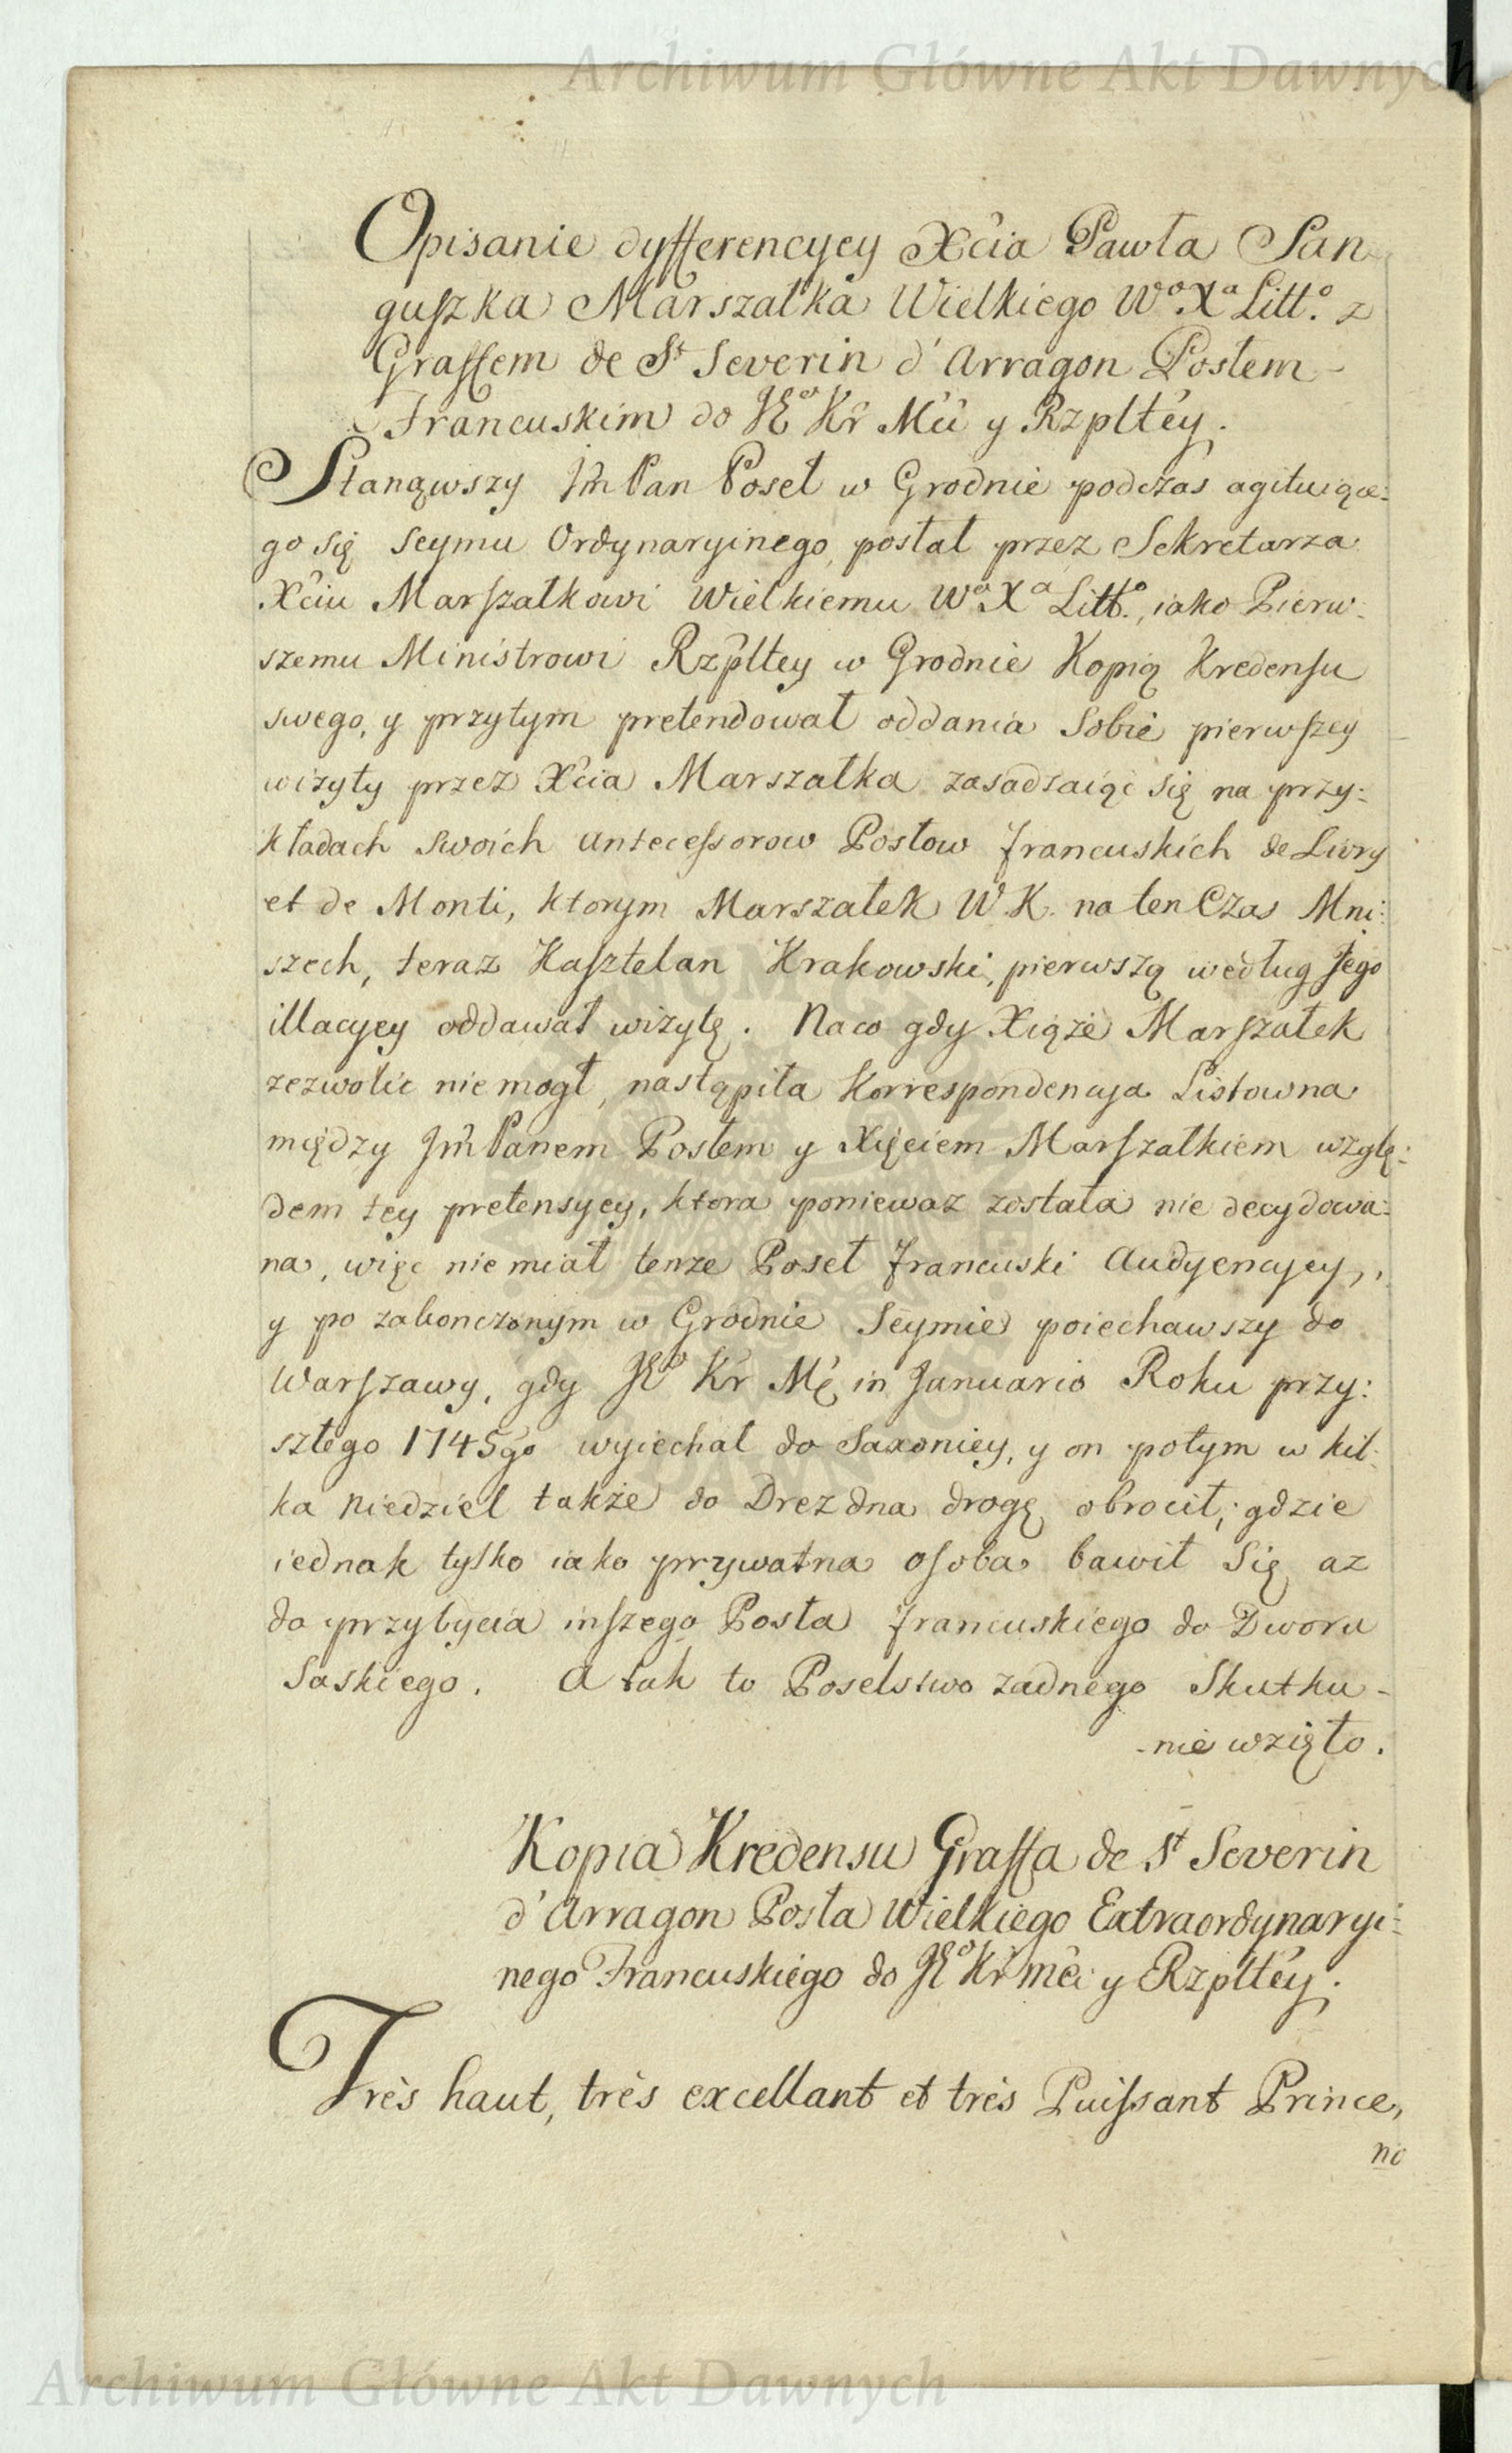 Archiwum Główne Akt Dawnych
Opisanie dyfferencyey Xcia Pawła San
guszka Marszałka Wielkiego Wº Xª Littº. z
Graffem de St Severin d'Arragon Posłem
Francuskim do JEº Kr Mci y Rzpltey.
Stanąwszy Jm Pan Poseł w Grodnie podczas agituiące:
go się Seymu Ordynaryinego, posłał przez Sekretarza
Xciu Marszałkowi Wielkiemu Wº Xª Littº., iako Pierw:
szemu Ministrowi Rzpltey w Grodnie Kopią Kredensu
swego, y przytym pretendował oddania Sobie pierwszey
wizyty przez Xcia Marszałka zasadzaiąc się na przy:
kładach swoich antecessorow Posłow francuskich de Livry
et de Monti, ktorym Marszałek W. K. na ten Czas Mni:
szech, teraz Kasztelan Krakowski, pierwszą według Jego
illacyey oddawał wizytę. Na co gdy Xiąże Marszałek
zezwolic nie mogł, nastąpiła Korrespondencya Listowna
między Jm Panem Posłem y Xięciem Marszałkiem wzglę:
dem tey pretensyey, ktora poniewaz została nie decydowa:
na, więc nie miał tenze Poseł francuski Audyencyey,
y po zakonczonym w Grodnie Seymie poiechawszy do
Warszawy, gdy JEº Kr Mć in Januario Roku przy:
szłego 1745go wyiechał do Saxoniey, y on potym w kil:
ka niedziel także do Drezdna drogę obrocił, gdzie
iednak tylko iako prywatna osoba bawił Się az
do przybycia inszego Posła francuskiego do Dworu
Saskiego. A tak to Poselstwo zadnego Skutku
nie wzięło.
Kopia Kredensu Graffa de St Severin
d'Arragon Posła Wielkiego Extraordynaryi:
nego Francuskiego do JEº Kr Mci y Rzpltey.
Très haut, très excellant et très Puissant Prince,
no
Archiwum Główne Akt Dawnych